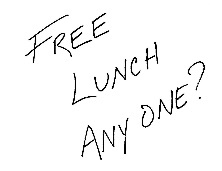 FREE
LUNCH
ANY ONE?